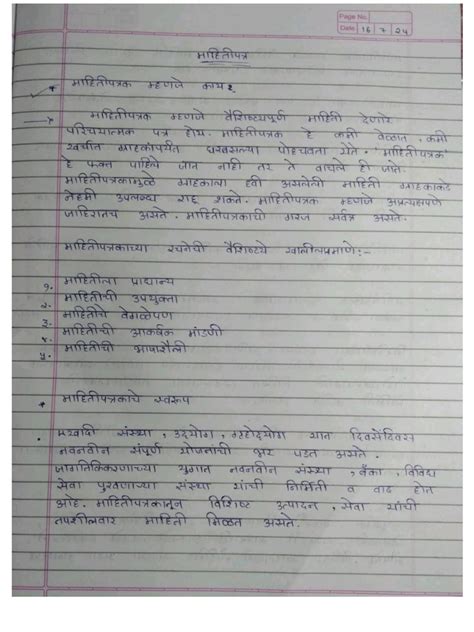 Page No.
Date 16 / 7 / 24
माहितीपत्र
* माहितीपत्रक म्हणजे काय ?
→ माहितीपत्रक म्हणजे वैशिष्ट्यपूर्ण माहिती देणारे
परिचयात्मक पत्र होय. माहितीपत्रक हे कमी वेळात, कमी
खर्चात ग्राहकांपर्यंत घरबसल्या पोहचवता येते. 'माहितीपत्रक'
हे फक्त पाहिले जात नाही तर ते वाचले ही जाते.
माहितीपत्रकामुळे ग्राहकाला हवी असलेली माहिती ग्राहकाकडे
नेहमी उपलब्ध राहू शकते. माहितीपत्रक म्हणजे अप्रत्यक्षपणे
जाहिरातच असते. माहितीपत्रकाची गरज सर्वत्र असते.
माहितीपत्रकाच्या रचनेची वैशिष्टये खालीलप्रमाणे:-
१. माहितीला प्राधान्य
२. माहितीची उपयुक्ता
३. माहितीचे वेगळेपण
४. माहितीची आकर्षक मांडणी
५. माहितीची भाषाशैली
* माहितीपत्रकाचे स्वरूप
संस्था, उद्योग, गृहोद्योग यात दिवसेंदिवस
नवनवीन संपूर्ण योजनांची भर पडत असते.
जागतिकिकरणाच्या युगात नवनवीन संस्था, बँका, विविध
सेवा पुरवणाच्या संस्था यांची निर्मिती व वाढ होत
आहे. माहितीपत्रकातून विशिष्ट उत्पादन, सेवा यांची
तपशीलवार माहिती मिळत असते.